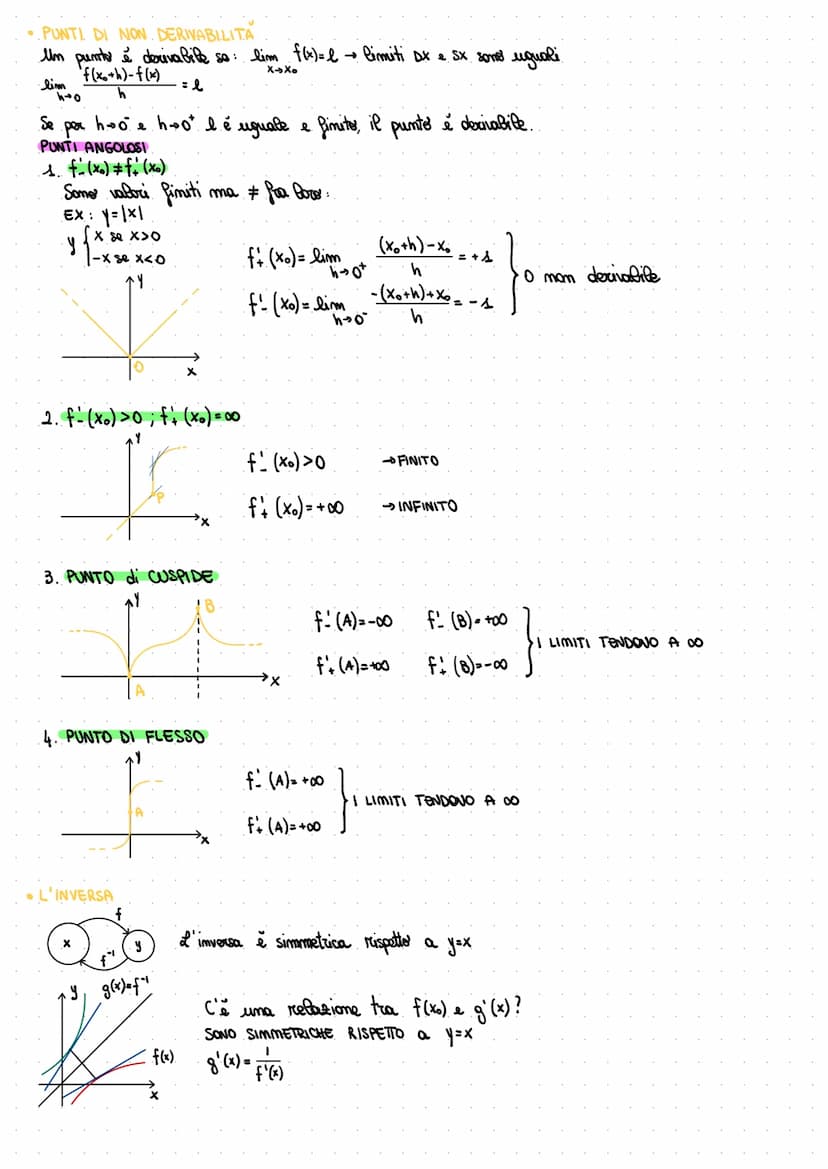 • PUNTI DI NON DERIVABILITÀ
Un punto é derivabile se: lim x→x₀ f(x)=l → limiti DX e SX sono uguali
lim h→0 f(x₀+h)-f(x)/h = l
Se per h→0⁻ e h→0⁺ l é uguale e finito, il punto é derivabile.
PUNTI ANGOLOSI
1. f'₋(x₀)≠f'₊(x₀)
Sono valori finiti ma ≠ fra loro:
EX: y=|x|
y { x se x>0
-x se x<0
f'₊(x₀)= lim h→0⁺ (x₀+h)-x₀/h = +1
f'₋(x₀)= lim h→0⁻ -(x₀+h)+x₀/h = -1
} 0 non derivabile
y
0
x
2. f'₋(x₀)>0 ; f'₊(x₀)=∞
y
P
x
f'₋(x₀)>0 →FINITO
f'₊(x₀)=+∞ →INFINITO
3. PUNTO di CUSPIDE
y
B
A
x
f'₋(A)=-∞ f'₋(B)=+∞
f'₊(A)=+∞ f'₊(B)=-∞
} I LIMITI TENDONO A ∞
4. PUNTO DI FLESSO
y
A
x
f'₋(A)=+∞
f'₊(A)=+∞
} I LIMITI TENDONO A ∞
• L'INVERSA
f
x
y
f⁻¹
L'inversa è simmetrica rispetto a y=x
y g(x)=f⁻¹
f(x)
x
C'è una relazione tra f(x₀) e g'(x)?
SONO SIMMETRICHE RISPETTO a y=x
g'(x)= 1/f'(x)